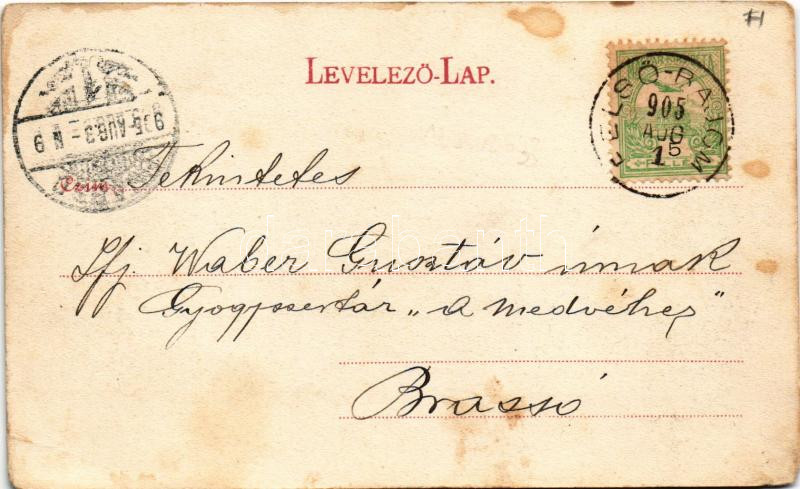 LEVELEZŐ-LAP.
FELSŐ-RAJOM
905
AUG
15
905 AUG. 3
N 9
Czim
Tekintetes
Ifj. Waber Gusztáv úrnak
Gyógyszertár „a medvéhez"
Brassó